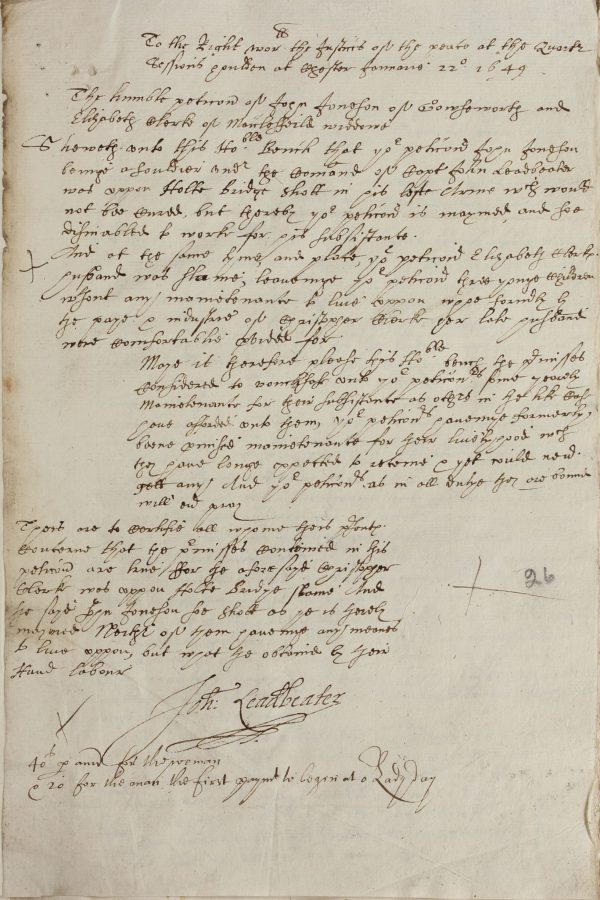 To the Right wor: the Justices of the peace at the Quarter
Sessions houlden at Chester Januarie 22º 1649
The humble peticon of John Jonsson of and
Elizabeth Clerk of Macclesfeild widdowe
Sheweth unto this Hoble Bench that yor peticonr John Jonsson
beinge a souldier undr the Comand of Capt John Leadbeater
was uppon Holte Bridge shott in his Arme wch would
not bee Cured, but thereby yor peticonr is maymed and soe
disinabled to worke for his subsistance.
And at the same tyme and place, yor peticonr Elizabeth Clerk
husband was slaine, leaveinge yor peticonr three yonge Children
wthout any maintenance to live uppon whoe formerly by
the paynes & industrie of Christopher Clerk her late husband
were Comfortablie pvided for
May it therefore please this Hoble bench the pmisses
Considered to vouchsafe unto yor peticonrs some yearely
Maintenance for their subsistance as others in the like Case
have afforded unto them, yor peticonrs haveinge formerly
beene pmised maintenance for their livelyhood wch
they have longe expected to receive & yet could nevr
gett any And yor peticonrs as in all dutye they are bound
will evr pray
Theis are to Certifie all whome theis psents
Concerne that the pmisses Conteined in this
peticon are true, ffor the aforesaid Christopher
Clerk was uppon Holte Bridge slaine And
the said John Jonsson soe shott as he is therely
maymed Neithr of them haveinge any meanes
to live uppon, but what the obteined by their
Hand labour
26
Joh: Leadbeater
40s p ann for the woman
& 20 for the man the first paymt to begin at o Lady Day